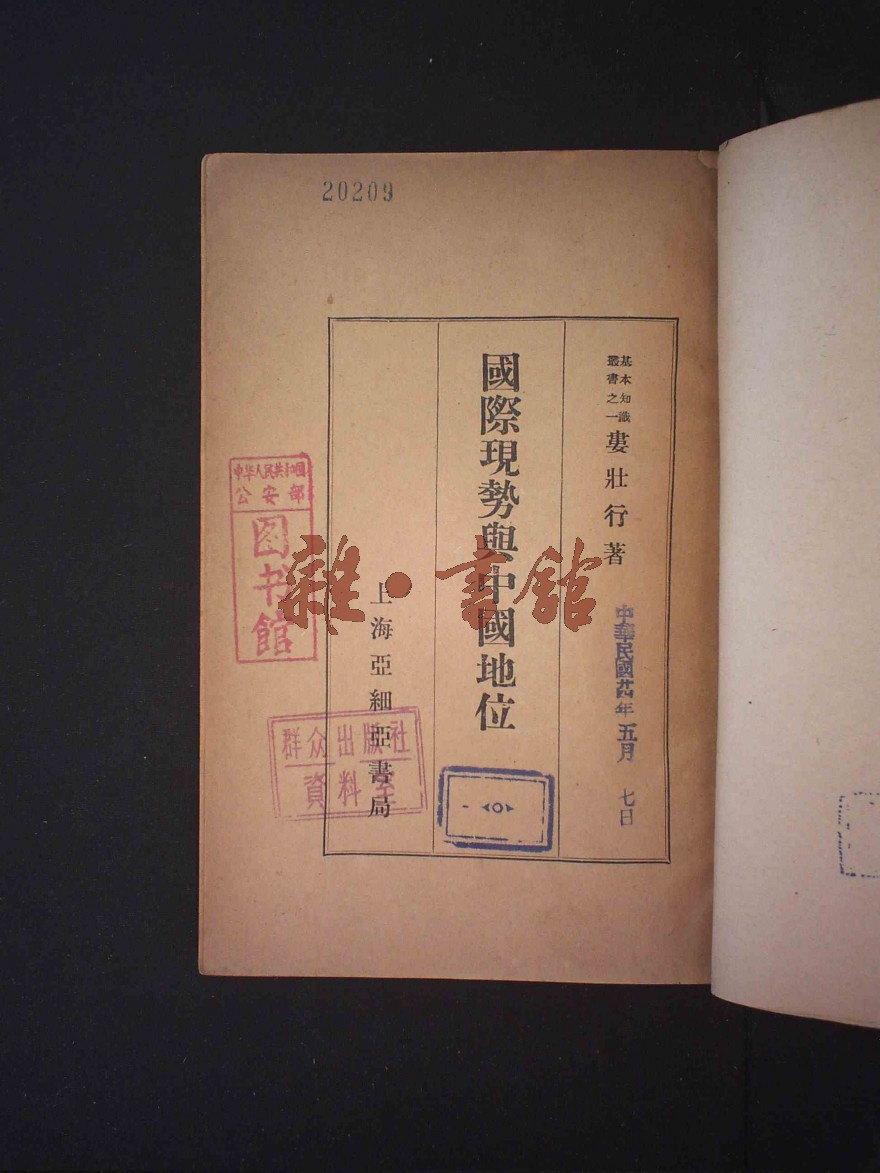 20209
基本知識
叢書之一
婁壯行著
國際現勢與中國地位
上海亞細亞書局
中華民國廿四年五月七日
中华人民共和國
公安部
图书館
群众出版社
資料室
雜·書館